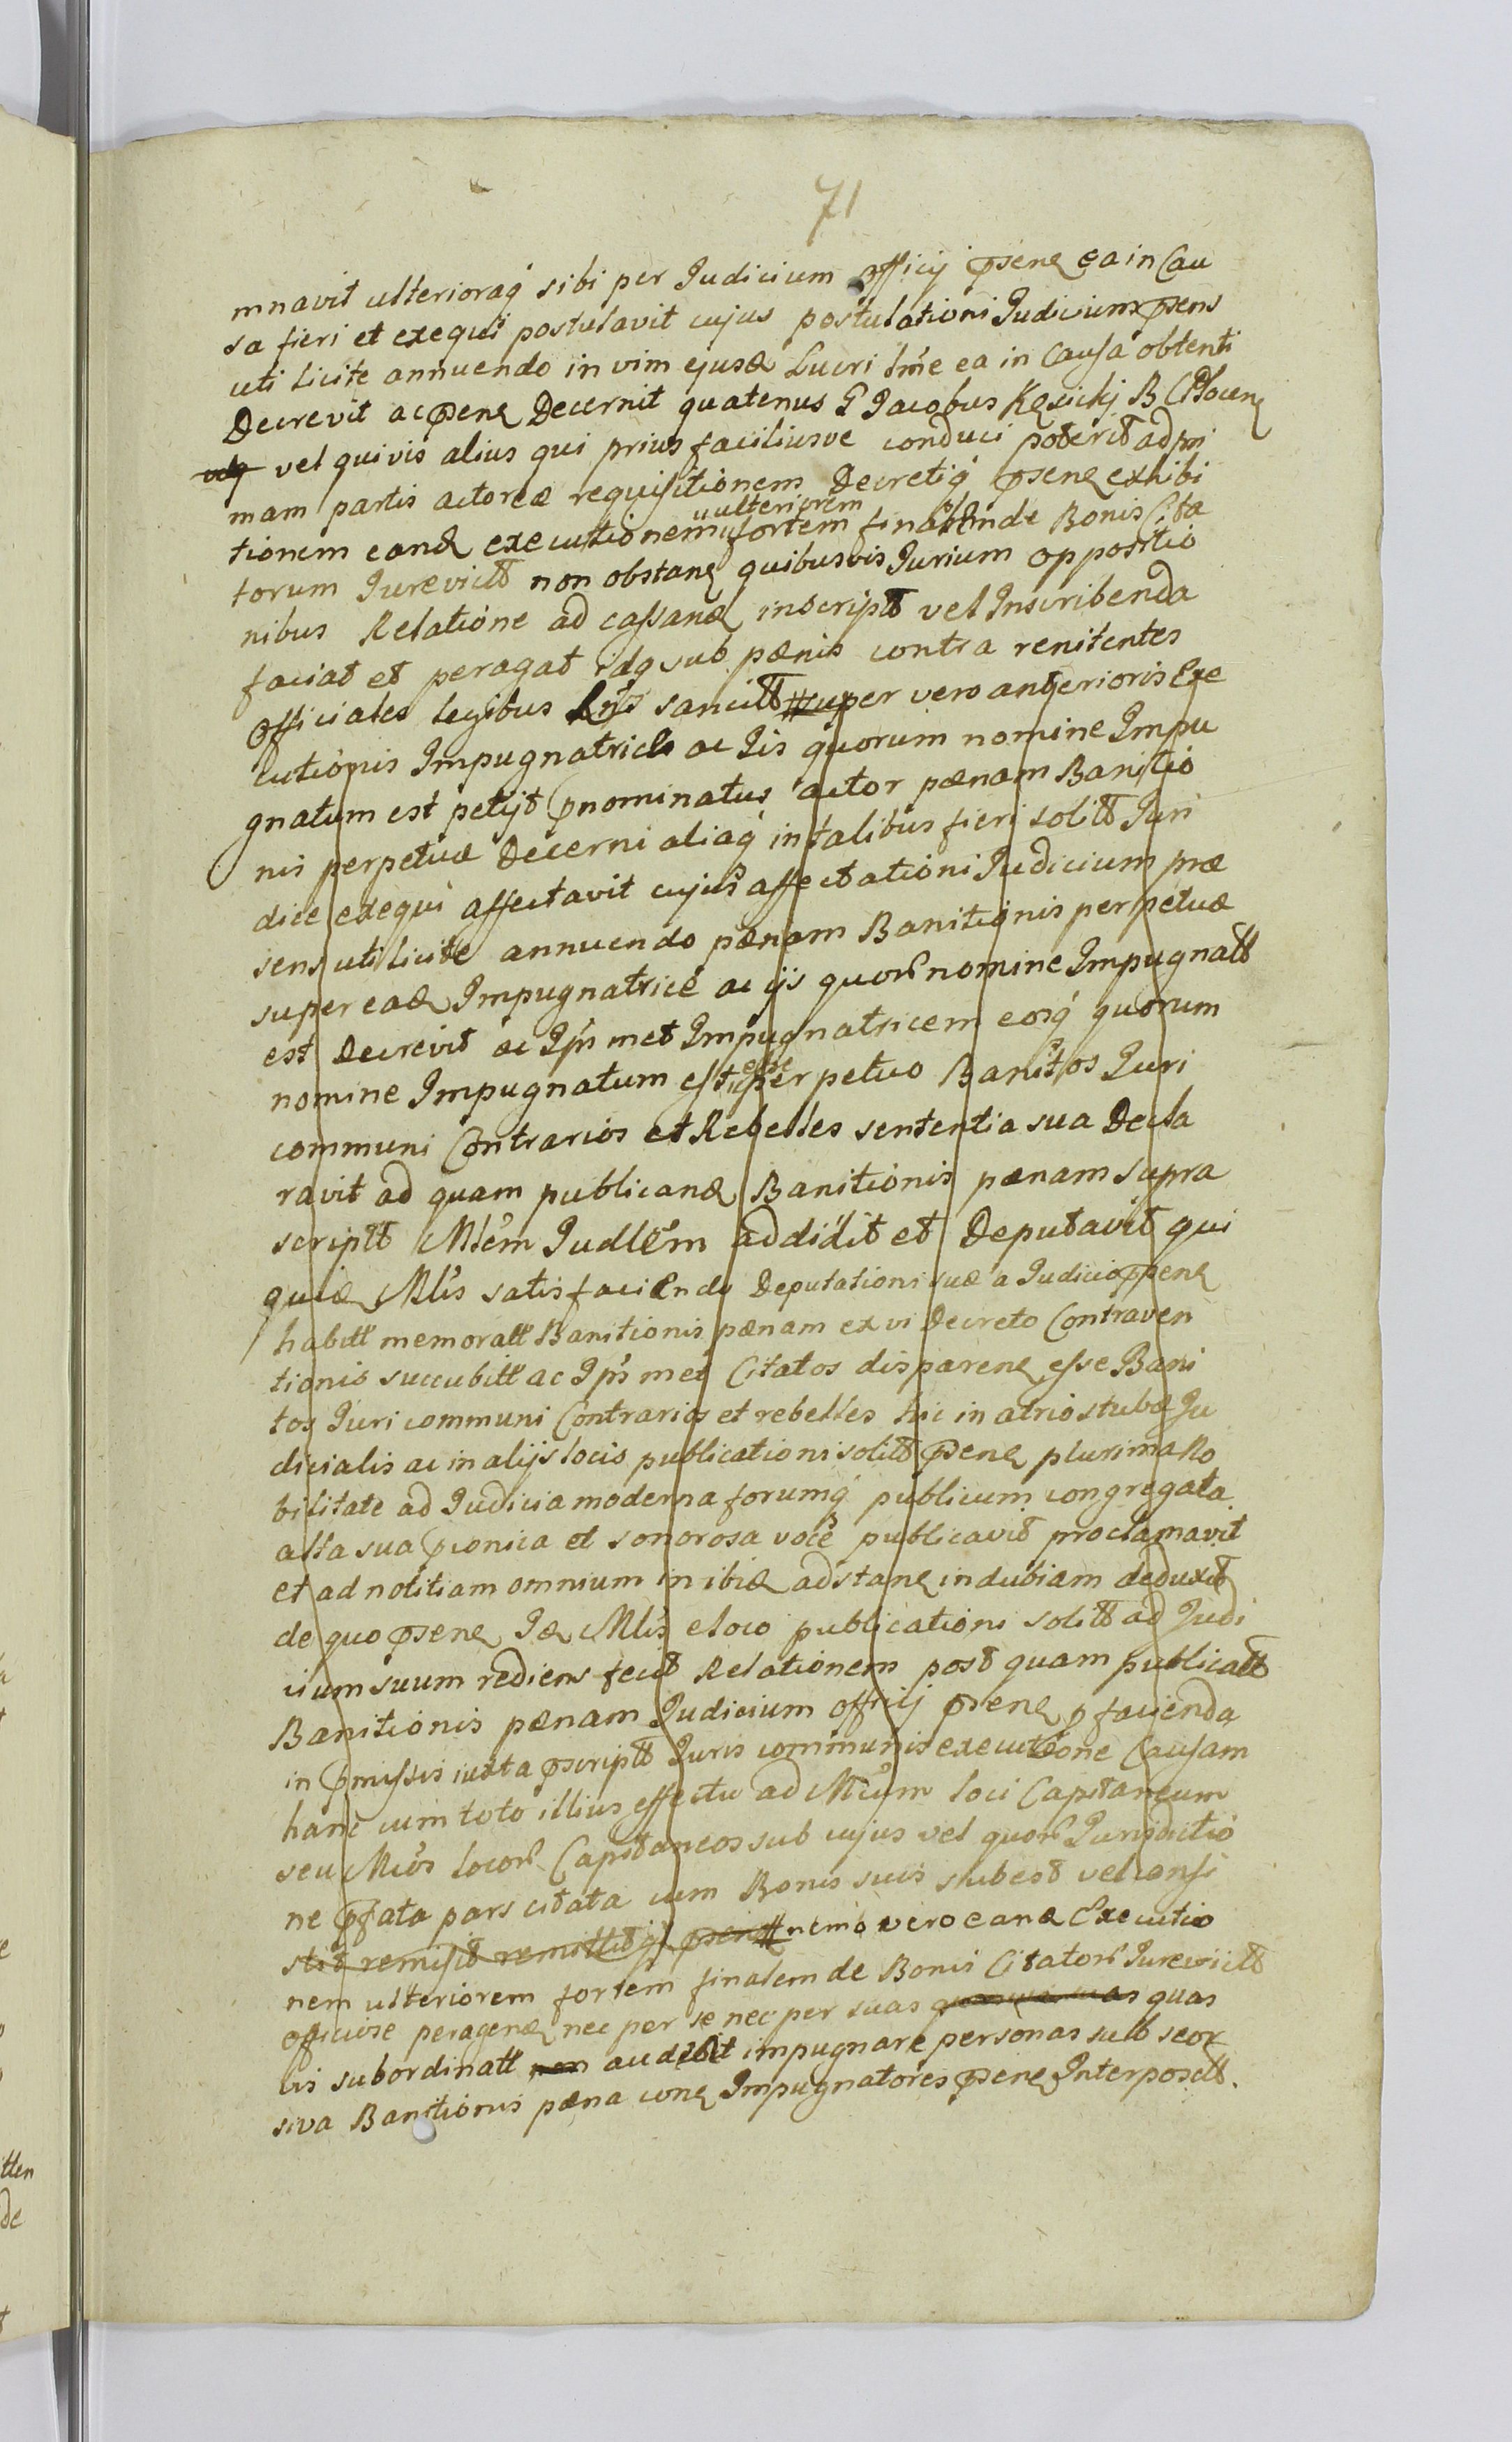 71
mnavit ulterioraq́ sibi per Judicium Officij pseng ea in Cau
sa fieri et exequi postulavit cujus postulationi Judicium psens
uti licite annuendo in vim ejusđ Lucri Ime ea in Causa obtenti
Decrevit ac pseng Decernit quatenus G Jacobus Kęsickj B C Plocen
vel quivis alius qui prius faciliusve conduci poterit ad pri
mam partis actoreæ requisitionem Decretiq́ pseng exhibi
tionem eanđ executionem ulteriorem fortem finalem de Bonis Cita
torum Jurevict non obstang quibusvis Jurium oppositio
nibus Relatione ad cassanđ inscript vel Inscribenda
faciat et peragat idq sub pænis contra renitentes
Officiales legibus Rni sancitt super vero anterioris Exe
cutionis Impugnatrice ac Iis quorum nomine Impu
gnatum est petijt pnominatus actor pænam Banitio
nis perpetuæ Decerni aliaq́ in talibus fieri solitt Juri
dice exequi affectavit cujus affectationi Judicium præ
sens uti licite annuendo pænam Banitionis perpetuæ
super eađ Impugnatrice ac ijs quor nomine Impugnatt
est Decrevit ac Ipm met Impugnatricem eosq́ quorum
nomine Impugnatum est esse perpetuo Banitos Juri
communi Contrarios et Rebelles sententia sua Decla
ravit ad quam publicanđ Banitionis pænam supra
scriptt Mlem Judlem addidit et Deputavit qui
quiđ Mlis satisfaciendo Deputationi suæ a Judicio pseng
habitt memoratt Banitionis pænam ex vi Decreto Contraven
tionis succubitt ac Ipm met Citatos dispareng esse Bani
tos Juri communi Contrarios et rebelles hic in atrio stubæ Ju
dicialis ac in alijs locis publicationi solitt pseng plurima No
bilitate ad Judicia moderna forumq́ publicum congregata
alta sua pconica et sonorosa voce publicavit proclamavit
et ad notitiam omnium in ibiđ adstang indubiam deduxit
de quo pseng Iđ Mlis e loco publicationi solitt ad Judi
cium suum rediens fecit Relationem post quam publicatt
Banitionis pænam Judicium officij pseng p facienda
in pmissis iuxta pscriptt Juris communis executione Causam
hanc cum toto illius effectu ad Mcum loci Capitaneum
seu Mcos locor Capitaneos sub cujus vel quor Jurisdictio
ne pfata pars citata cum Bonis suis subest vel consi
stit remisit remittitq́ pseng nemo vero eanđ Executio
nem ulteriorem fortem finalem de Bonis Citator Jurevictt
officiose perageng nec per se nec per suas quas
vis subordinatt audebit impugnare personas sub seor
siva Banitionis pæna cong Impugnatores pseng Interpositt.